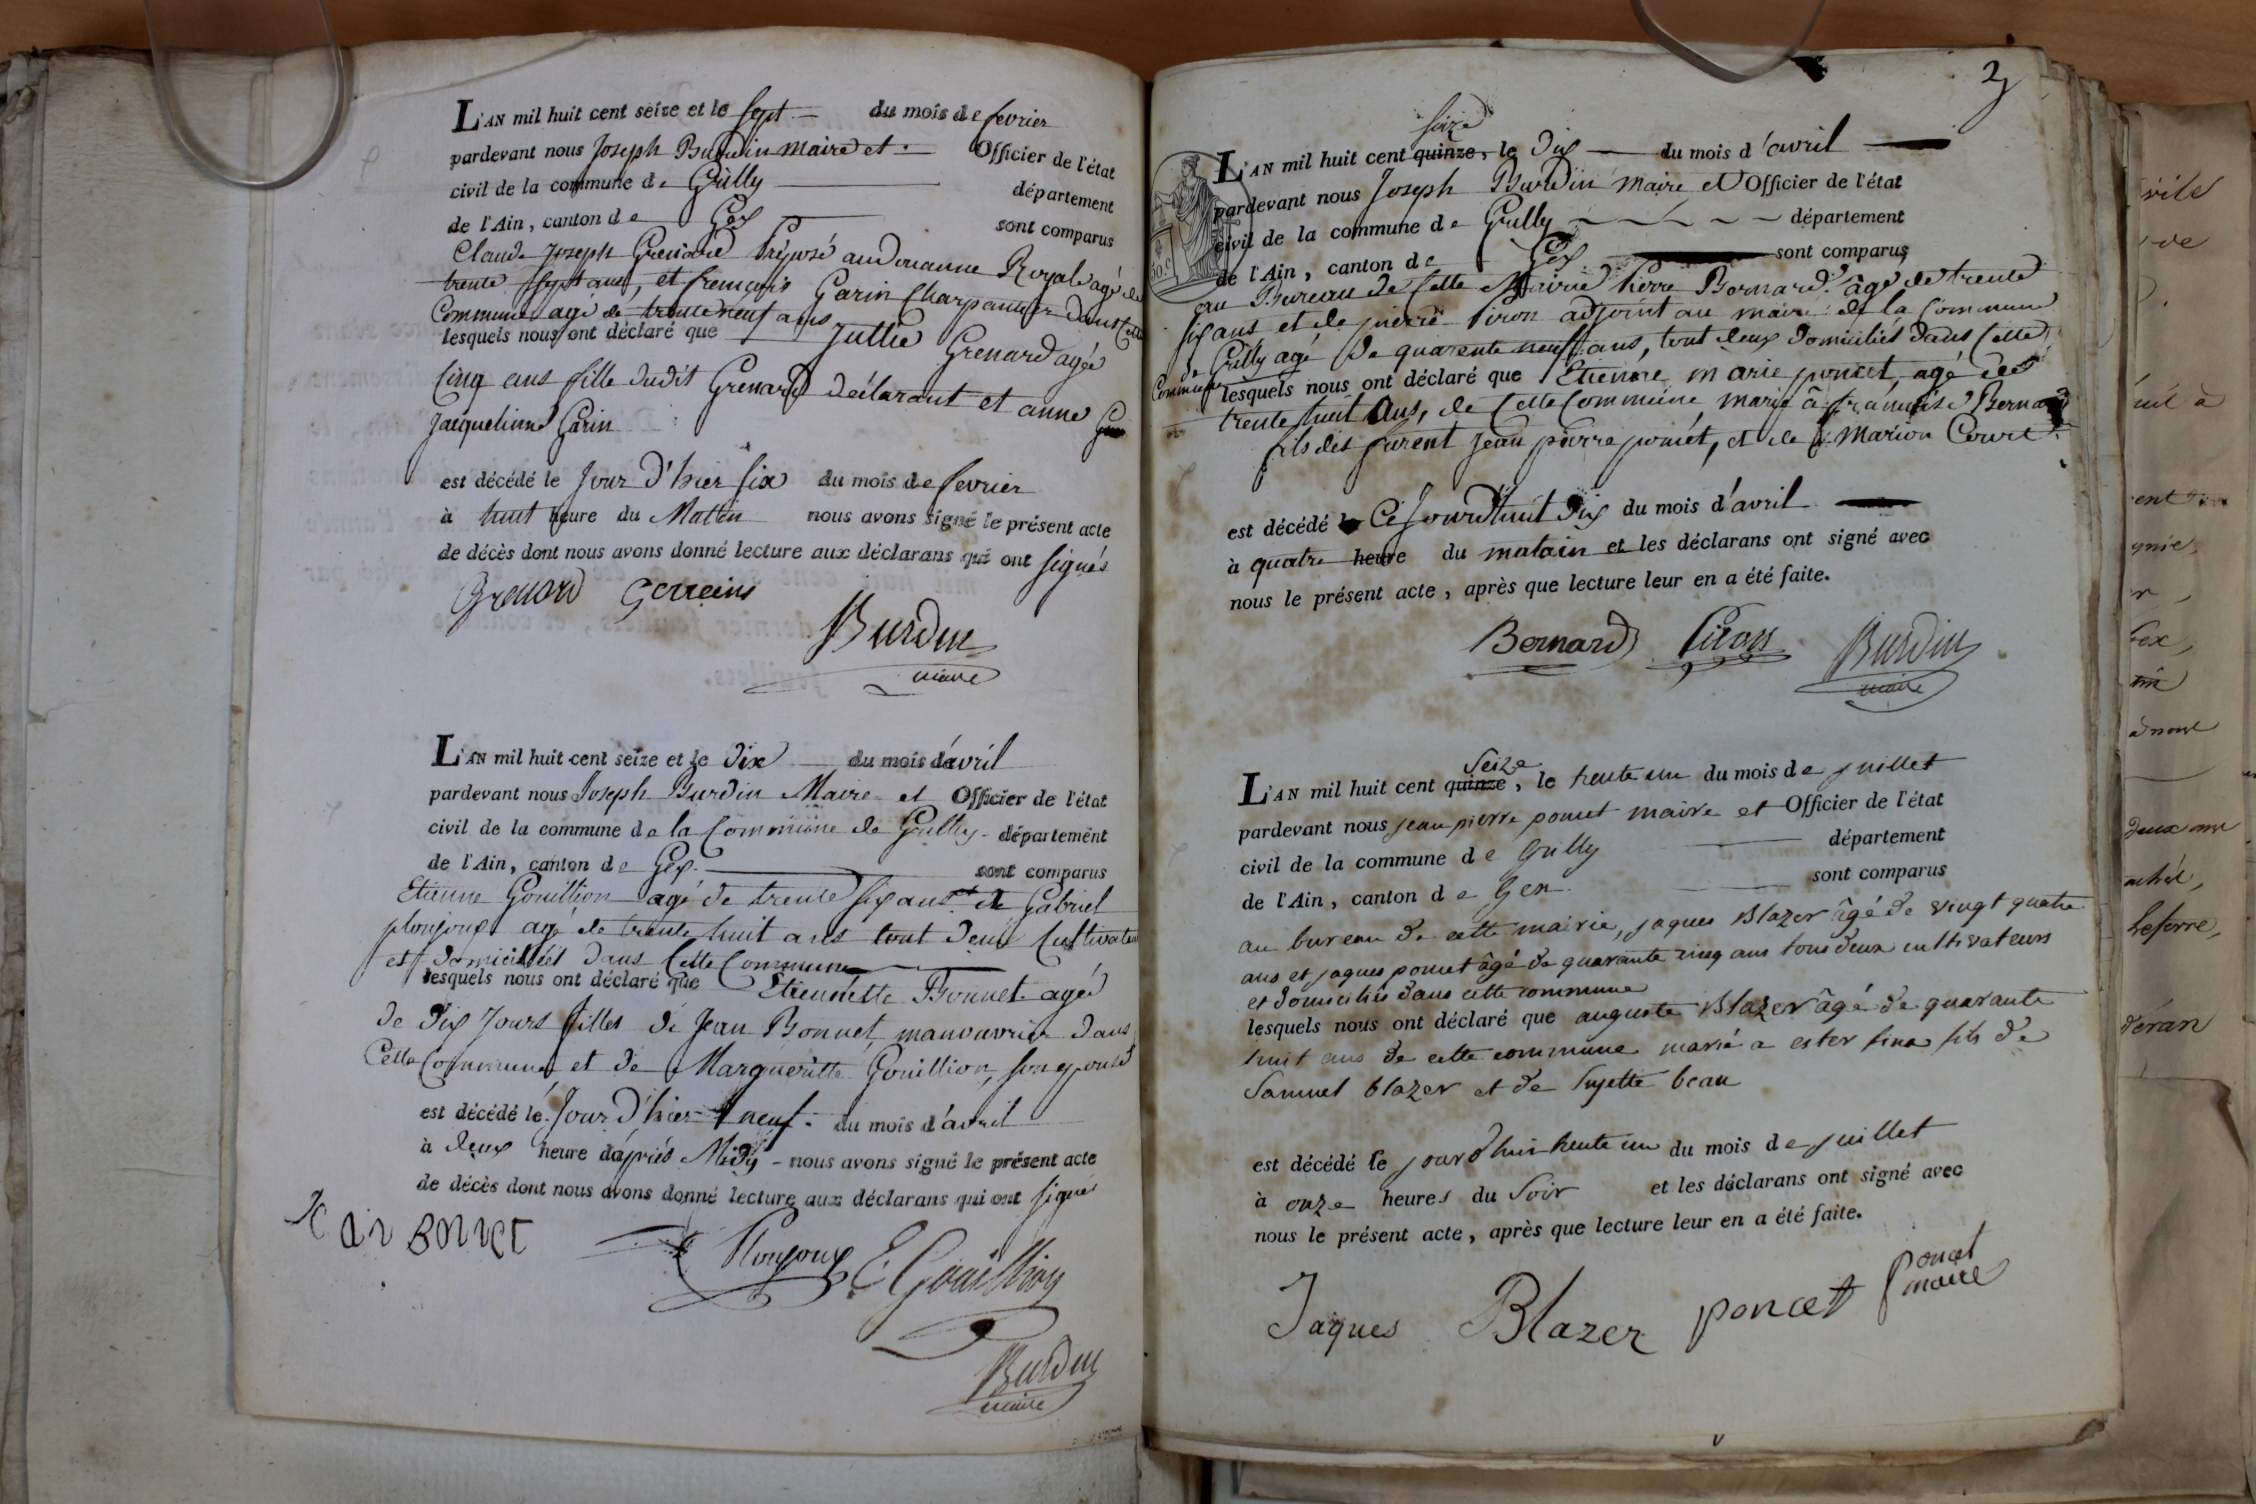 L'AN mil huit cent seize et le sept du mois de fevrier
pardevant nous Joseph Burdin maire et Officier de l'état
civil de la commune de Grilly département
de l'Ain, canton de Gex sont comparus
Claude Joseph Grenard Préposé au Douanne Royale agé de
trente sept ans, et françois Garin Charpantier dans Cette
Commune agé de trente neuf ans
lesquels nous ont déclaré que Jullie Grenard agée
Cinq ans fille dudit Grenard déclarant et anne
Jacqueline Garin
est décédé le Jour D'hier six du mois de fevrier
à huit heure du Matin nous avons signé le présent acte
de décès dont nous avons donné lecture aux déclarans qui ont signés
Grenard Garreins
Burdin
maire
L'AN mil huit cent seize et le Dix du mois d'avril
pardevant nous Joseph Burdin Maire et Officier de l'état
civil de la commune de la Commune de Grilly département
de l'Ain, canton de Gex sont comparus
Etienne Gouillion agé de trente six ans et de Gabriel
plonjoux agé de trente huit ans tout deux Cultivateur
et domiciliéés dans Cette Commune
lesquels nous ont déclaré que Etiennette Bonnet agée
de Dix Jours filles de Jean Bonnet manouvrier dans
Cette Commune et de Margueritte Gouillion, son epouse
est décédé le Jour D'hier neuf du mois d'avril
à deux heure d'après Midy nous avons signé le présent acte
de décès dont nous avons donné lecture aux déclarans qui ont signés
BONNET Plonjoux E Gouillion
Burdin
maire
2
seize
L'AN mil huit cent quinze, le Dix du mois d'avril
pardevant nous Joseph Burdin maire et Officier de l'état
civil de la commune de Grilly département
de l'Ain, canton de Gex sont comparus
au Bureau de Cette Mairie Pierre Bernard âgé de trente
six ans et de pierre Piron adjoint au maire de la Commune
de Grilly agé de quarente neuf ans, tout deux domiciliés dans Cette
Commune lesquels nous ont déclaré que Etienne marie poncet, agé des
trente huit ans, de Cette Commune marié à françoise Bernard
fils des furent Jean pierre poncet, et de Marion Court
est décédé le Ce Jourd'huit Dix du mois d'avril
à quatre heure du matain et les déclarans ont signé avec
nous le présent acte, après que lecture leur en a été faite.
Bernard Piron Burdin
maire
Seize
L'AN mil huit cent quinze, le trente un du mois de juillet
pardevant nous jean pierre poncet maire et Officier de l'état
civil de la commune de Grilly département
de l'Ain, canton de Gex sont comparus
au bureau de cette mairie, jaques Blazer âgé de vingt quatre
ans et jaques poncet âgé de quarante cinq ans tous deux cultivateurs
et domiciliés dans cette commune
lesquels nous ont déclaré que auguste Blazer âgé de quarante
huit ans de cette commune marié a ester fina fils de
Samuel blazer et de Suzette beau
est décédé le jourd'hui trente un du mois de juillet
à onze heures du Soir et les déclarans ont signé avec
nous le présent acte, après que lecture leur en a été faite.
Jaques Blazer poncet poncet
maire